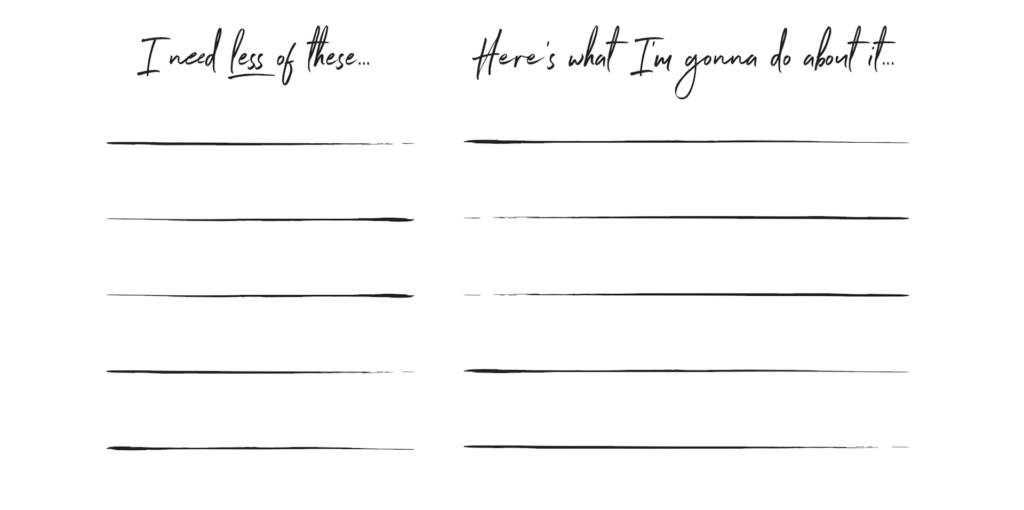 I need less of these...
Here's what I'm gonna do about it...